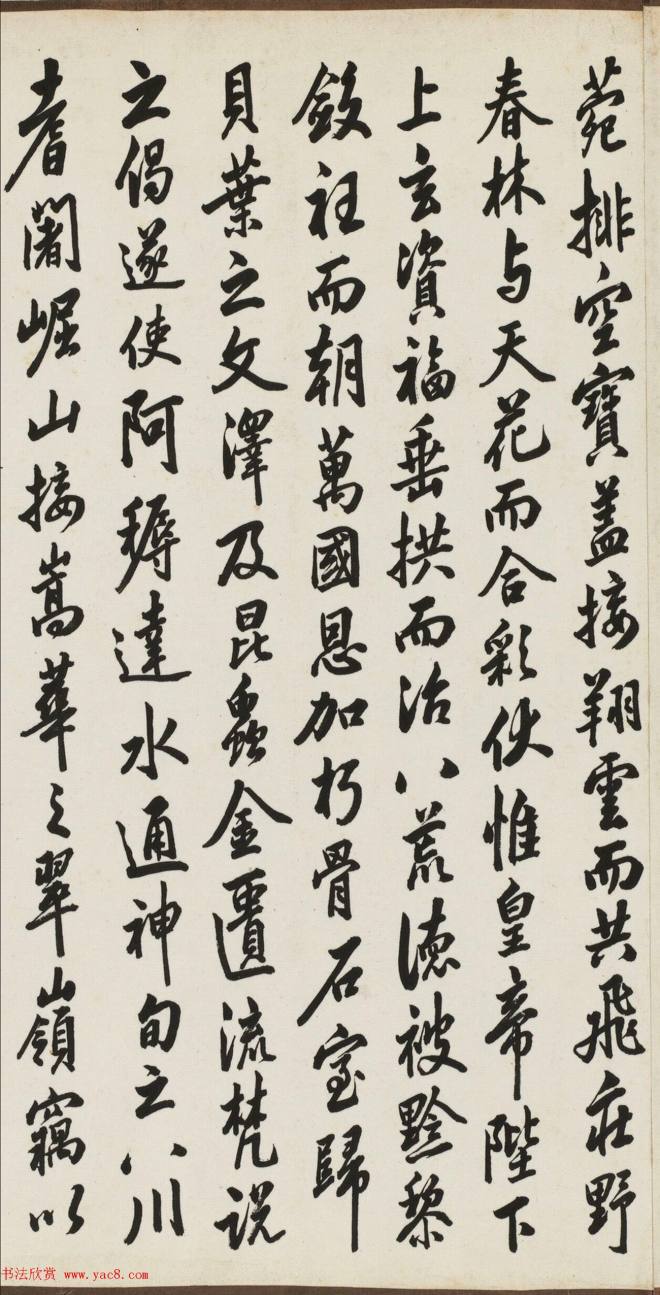 菀排空寶蓋接翔雲而共飛莊野
春林与天花而合彩伏惟皇帝陛下
上玄資福垂拱而治八荒德被黔黎
斂衽而朝萬國恩加朽骨石室歸
貝葉之文澤及昆蟲金匱流梵説
之偈遂使阿耨達水通神甸之八川
耆闍崛山接嵩華之翠嶺竊以
书法欣赏 www.yac8.com